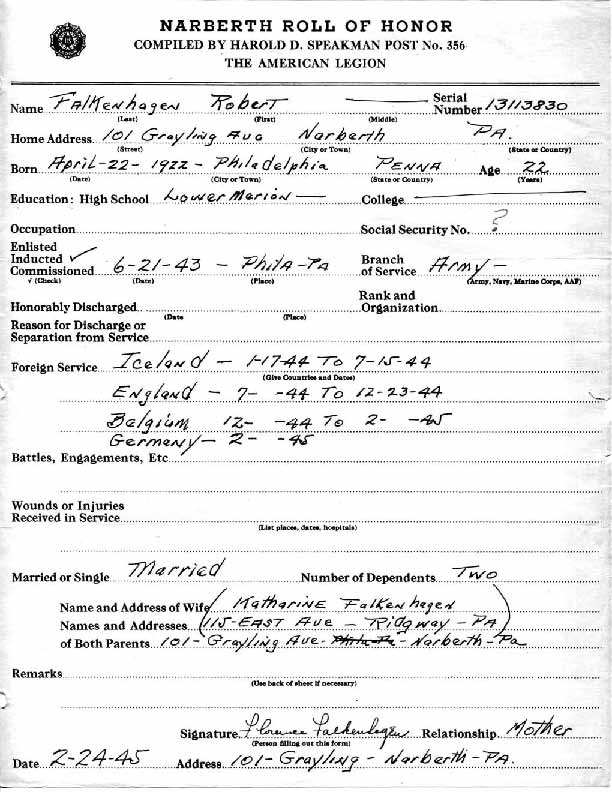 NARBERTH ROLL OF HONOR
COMPILED BY HAROLD D. SPEAKMAN POST No. 356
THE AMERICAN LEGION
Name Falkenhagen Robert — Serial Number 13113830
(Last) (First) (Middle)
Home Address 101 Grayling Ave Narberth PA.
(Street) (City or Town) (State or Country)
Born April-22-1922 - Philadelphia PENNA Age 22
(Date) (City or Town) (State or Country) (Years)
Education: High School Lower Merion — College —
Occupation Social Security No. ?
Enlisted
Inducted ✓
Commissioned 6-21-43 - Phila-Pa Branch of Service Army -
√ (Check) (Date) (Place) (Army, Navy, Marine Corps, AAF)
Honorably Discharged Rank and Organization
(Date (Place)
Reason for Discharge or
Separation from Service
Foreign Service Iceland - 1-17-44 To 7-15-44
(Give Countries and Dates)
England - 7- -44 To 12-23-44
Belgium 12- -44 To 2- -45
Germany - 2- -45
Battles, Engagements, Etc.
Wounds or Injuries
Received in Service
(List places, dates, hospitals)
Married or Single Married Number of Dependents Two
Name and Address of Wife Katharine Falkenhagen
Names and Addresses (115-EAST Ave - Ridgway - PA)
of Both Parents 101-Grayling Ave- Phila-Pa - Narberth-Pa
Remarks
(Use back of sheet if necessary)
Signature Florence Falkenhagen Relationship Mother
(Person filling out this form)
Date 2-24-45 Address 101-Grayling - Narberth-PA.